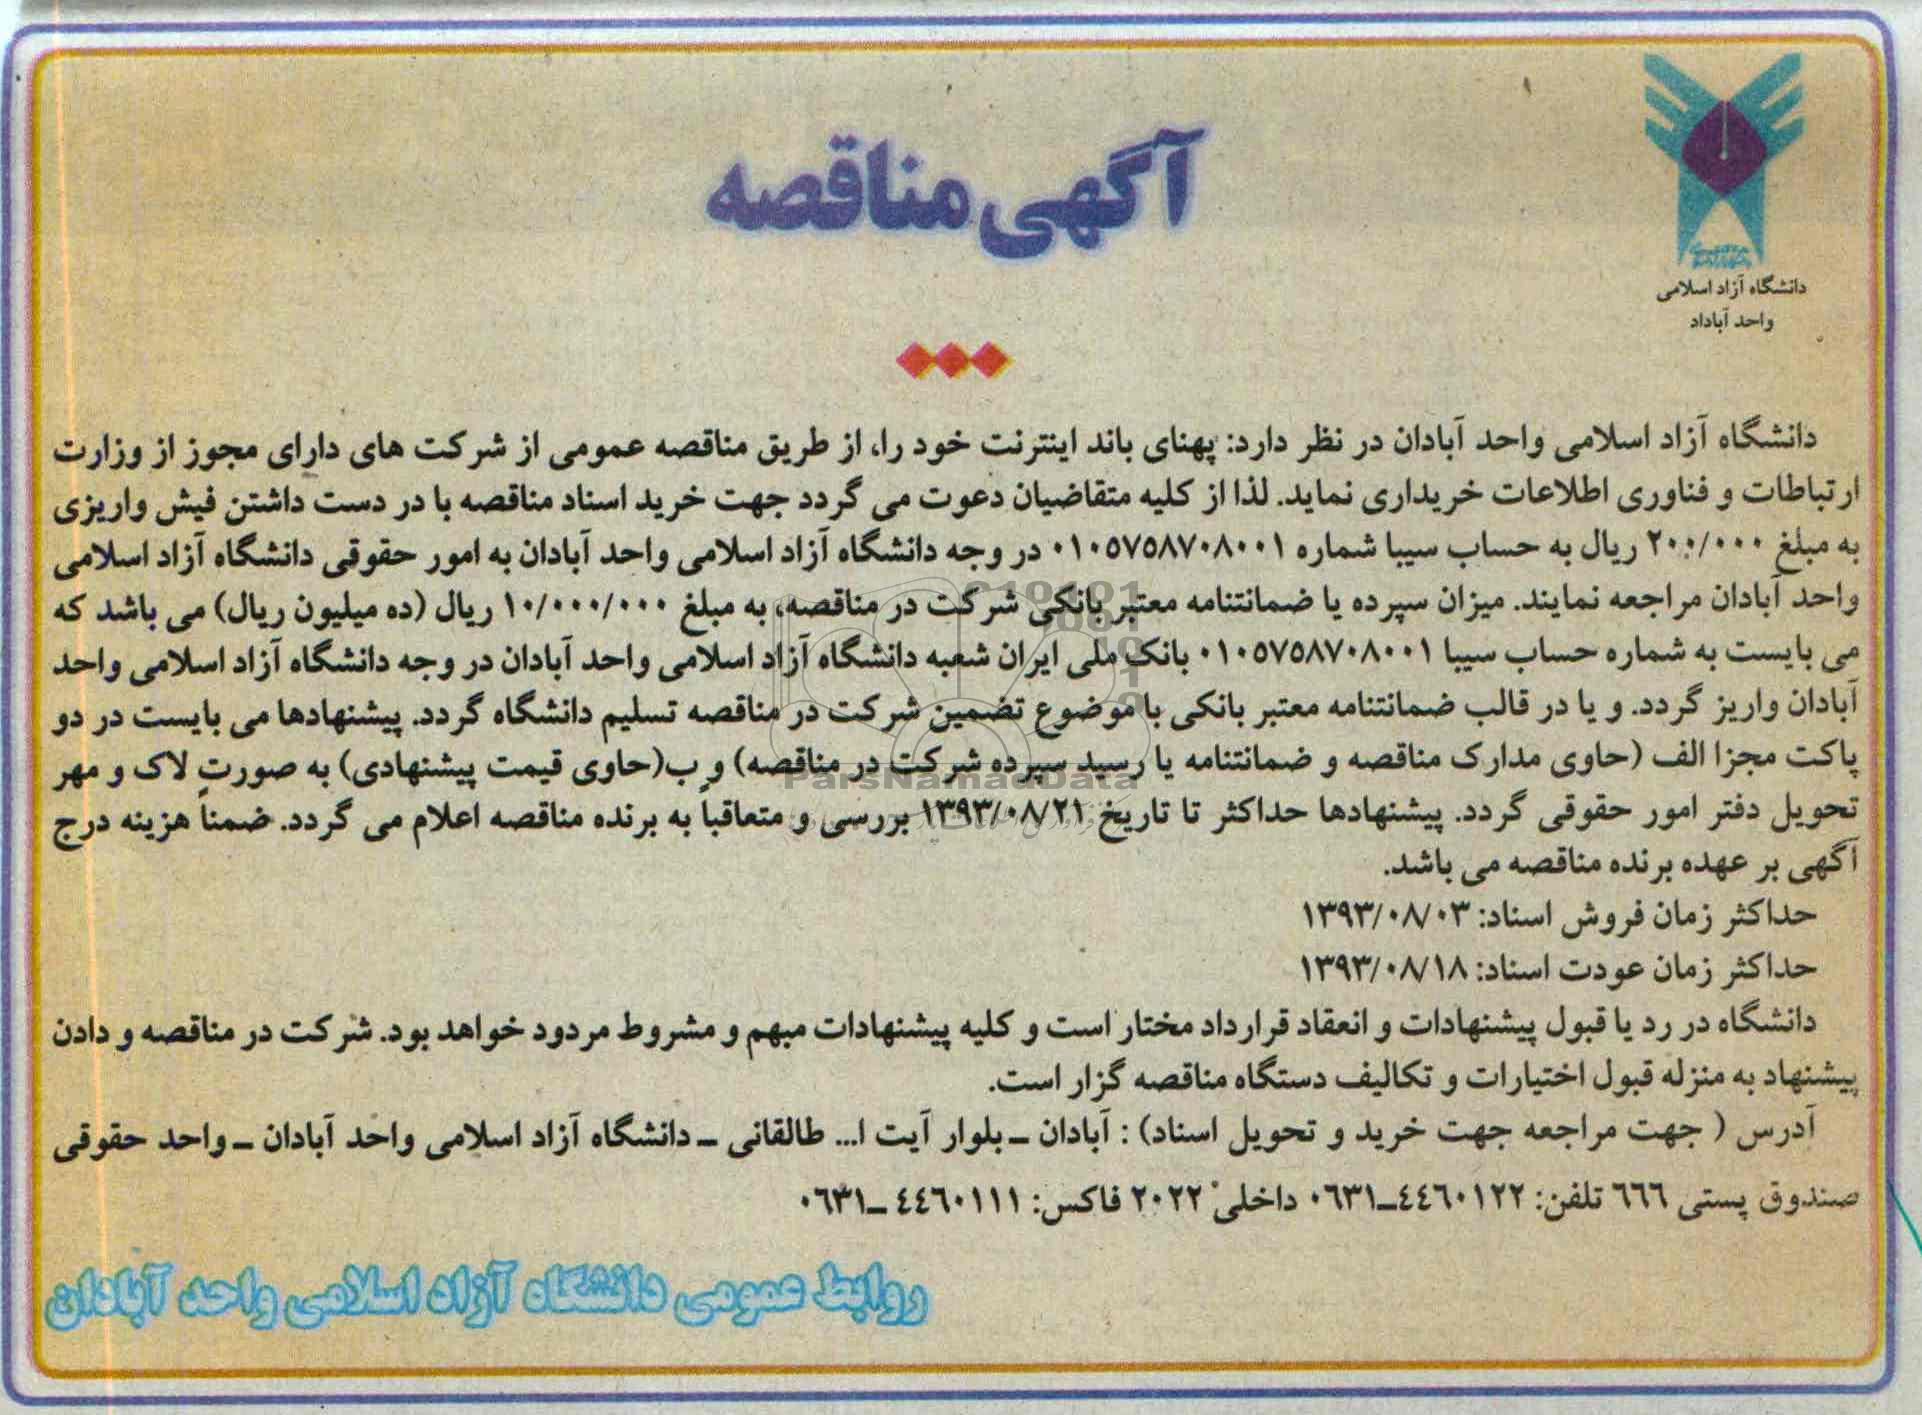 آگهی مناقصه
دانشگاه آزاد اسلامی
واحد آباداد
دانشگاه آزاد اسلامی واحد آبادان در نظر دارد: پهنای باند اینترنت خود را، از طریق مناقصه عمومی از شرکت های دارای مجوز از وزارت
ارتباطات و فناوری اطلاعات خریداری نماید. لذا از کلیه متقاضیان دعوت می گردد جهت خرید اسناد مناقصه با در دست داشتن فیش واریزی
به مبلغ ۲۰۰/۰۰۰ ریال به حساب سیبا شماره ۰۱۰۵۷۵۸۷۰۸۰۰۱ در وجه دانشگاه آزاد اسلامی واحد آبادان به امور حقوقی دانشگاه آزاد اسلامی
واحد آبادان مراجعه نمایند. میزان سپرده یا ضمانتنامه معتبر بانکی شرکت در مناقصه، به مبلغ ۱۰/۰۰۰/۰۰۰ ریال (ده میلیون ریال) می باشد که
می بایست به شماره حساب سیبا ۰۱۰۵۷۵۸۷۰۸۰۰۱ بانک ملی ایران شعبه دانشگاه آزاد اسلامی واحد آبادان در وجه دانشگاه آزاد اسلامی واحد
آبادان واریز گردد. و یا در قالب ضمانتنامه معتبر بانکی با موضوع تضمین شرکت در مناقصه تسلیم دانشگاه گردد. پیشنهادها می بایست در دو
پاکت مجزا الف (حاوی مدارک مناقصه و ضمانتنامه یا رسید سپرده شرکت در مناقصه) و ب(حاوی قیمت پیشنهادی) به صورت لاک و مهر
تحویل دفتر امور حقوقی گردد. پیشنهادها حداکثر تا تاریخ ۱۳۹۳/۰۸/۲۱ بررسی و متعاقباً به برنده مناقصه اعلام می گردد. ضمناً هزینه درج
آگهی بر عهده برنده مناقصه می باشد.
حداکثر زمان فروش اسناد: ۱۳۹۳/۰۸/۰۳
حداکثر زمان عودت اسناد: ۱۳۹۳/۰۸/۱۸
دانشگاه در رد یا قبول پیشنهادات و انعقاد قرارداد مختار است و کلیه پیشنهادات مبهم و مشروط مردود خواهد بود. شرکت در مناقصه و دادن
پیشنهاد به منزله قبول اختیارات و تکالیف دستگاه مناقصه گزار است.
آدرس ( جهت مراجعه جهت خرید و تحویل اسناد) : آبادان ـ بلوار آیت ا... طالقانی ـ دانشگاه آزاد اسلامی واحد آبادان ـ واحد حقوقی
صندوق پستی ٦٦٦ تلفن: ٤٤٦٠١٢٢ـ٠٦٣١ داخلی ٢٠٢٢ فاکس: ٤٤٦٠١١١ ـ٠٦٣١
روابط عمومی دانشگاه آزاد اسلامی واحد آبادان
ParsNamadData